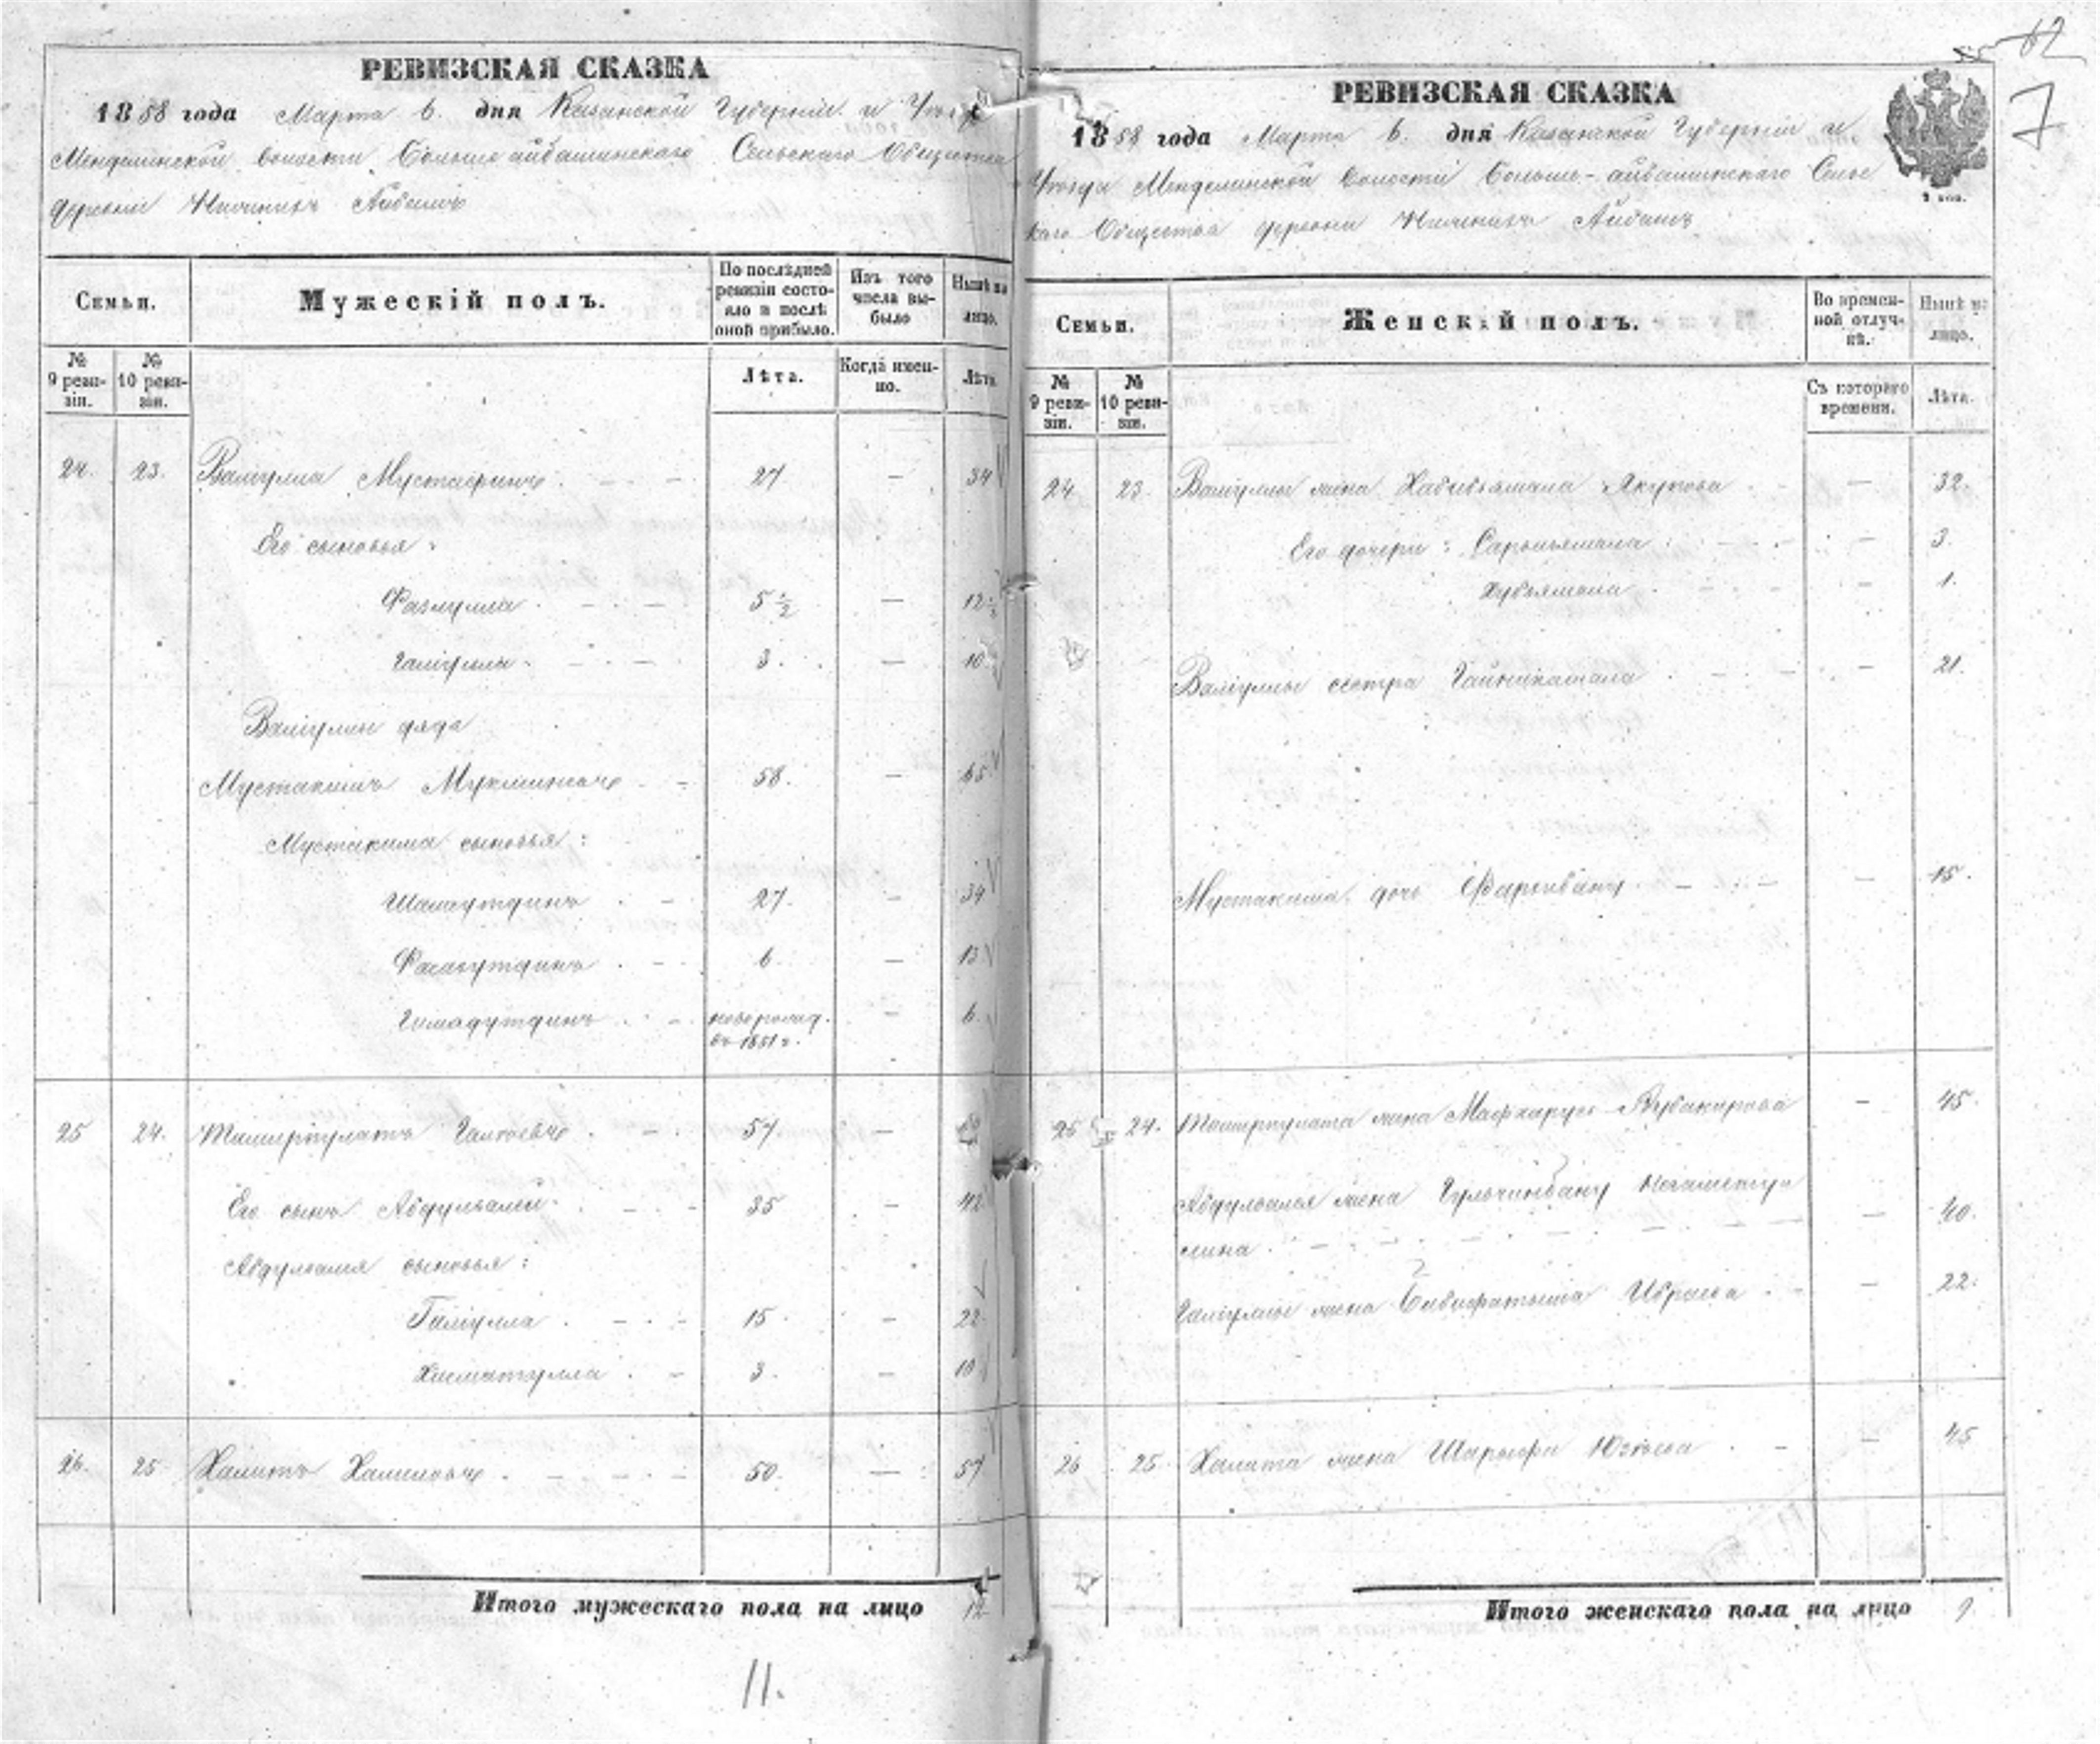 РЕВИЗСКАЯ СКАЗКА
1858 года Марта 6. дня Казанской Губернии и Уезда
Менделинской волости Больше айбашинскаго Сельскаго Общества
деревни Нижнихъ Айбашъ
Семьи.
Мужескій полъ.
По послѣдней ревизіи состояло и послѣ оной прибыло.
Изъ того числа выбыло
Нынѣ на лицо.
№ 9 ревизіи.
№ 10 ревизіи.
Лѣта.
Когда именно.
Лѣта
24. 23. Валіулла Мустафинъ 27 — 34
Его сыновья:
Фазлулла 5 1/2 — 12 1/2
Галіулла 3. — 10
Валіуллы дядя
Мустакимъ Мукминовъ 58. — 65
Мустакима сыновья:
27. — 34
6 — 13
Гимадутдинъ новорожд. въ 1851 г. — 6.
25 24. 57 —
Его сынъ Абдулвалей 35 — 42
Абдулвалея сыновья:
Галіулла 15 — 22
Хисматулла 3. — 10
26. 25 Халитъ Халиловъ 50. — 57
Итого мужескаго пола на лицо 12
11.
62
7
РЕВИЗСКАЯ СКАЗКА
1858 года Марта 6. дня Казанской Губерніи и
Уезда Менделинской волости Больше-айбашинскаго Сельс
каго Общества деревни Нижнихъ Айбашъ
Семьи.
Женскій полъ.
Во временной отлучкѣ.
Нынѣ на лицо.
№ 9 ревизіи.
№ 10 ревизіи.
Съ котораго времени.
Лѣта.
24 23. Валіуллы жена Хабибъямала Якупова — 32.
Его дочери: — 3.
Хубъямала — 1.
Валіуллы сестра Гайникамала — 21.
Мустакима дочь — 15.
25 24. жена — 45.
Абдулвалея жена Гульчинбану Нигаметул
лина — 40.
Галіуллы жена Бибифатыма Ибраева — 22.
26 25. Халита жена Шарыфа Юзѣева — 45
Итого женскаго пола на лицо 9.